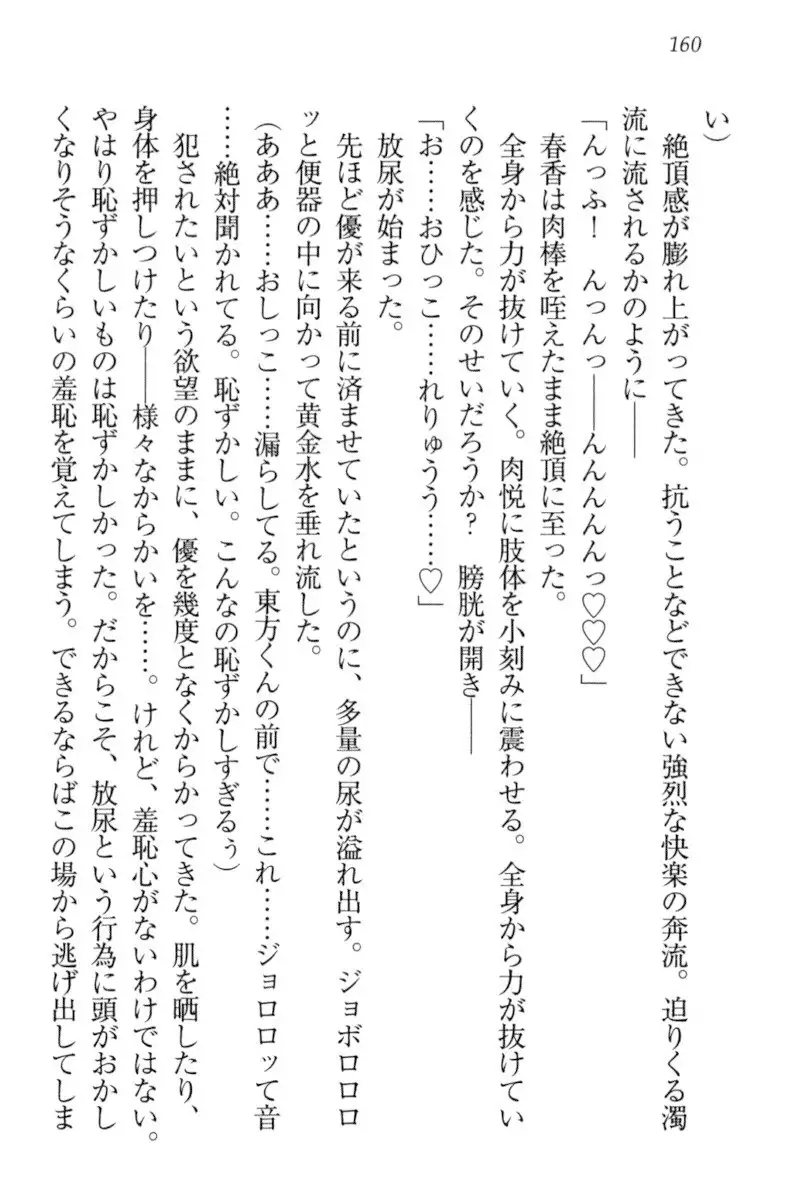 160
い)
　絶頂感が膨れ上がってきた。抗うことなどできない強烈な快楽の奔流。迫りくる濁
流に流されるかのように――
「んっふ！　んっんっ――んんんんんっ♡♡♡」
　春香は肉棒を咥えたまま絶頂に至った。
　全身から力が抜けていく。肉悦に肢体を小刻みに震わせる。全身から力が抜けてい
くのを感じた。そのせいだろうか？　膀胱が開き――
「お……おひっこ……れりゅうう……♡」
　放尿が始まった。
　先ほど優が来る前に済ませていたというのに、多量の尿が溢れ出す。ジョボロロロ
ッと便器の中に向かって黄金水を垂れ流した。
（あああ……おしっこ……漏らしてる。東方くんの前で……これ……ジョロロッて音
……絶対聞かれてる。恥ずかしい。こんなの恥ずかしすぎるぅ）
　犯されたいという欲望のままに、優を幾度となくからかってきた。肌を晒したり、
身体を押しつけたり――様々なからかいを……。けれど、羞恥心がないわけではない。
やはり恥ずかしいものは恥ずかしかった。だからこそ、放尿という行為に頭がおかし
くなりそうなくらいの羞恥を覚えてしまう。できるならばこの場から逃げ出してしま